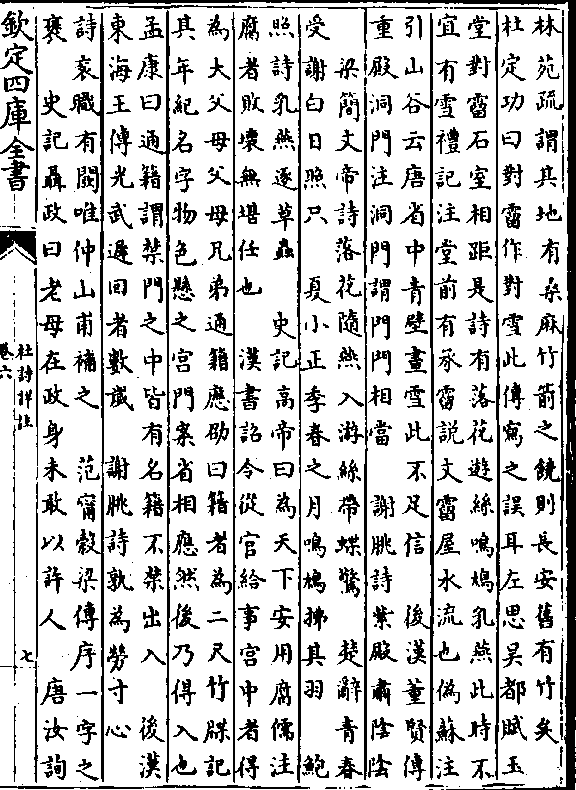 林苑疏謂其地有桑麻竹箭之饒則長安舊有竹矣
杜定功曰對霤作對雪此傳寫之誤耳左思吳都賦玉
堂對霤石室相距是詩有落花遊絲鳴鳩乳燕此時不
宜有雪禮記注堂前有承霤説文霤屋水流也偽蘇注
引山谷云唐省中青壁畫雪此不足信　後漢董賢傳
重殿洞門注洞門謂門門相當　謝朓詩紫殿肅陰陰
　梁簡文帝詩落花隨燕入游絲帶蝶驚　楚辭青春
受謝白日照只　夏小正季春之月鳴鳩拂其羽　鮑
照詩乳燕逐草蟲　史記高帝曰為天下安用腐儒注
腐者敗壞無堪任也　漢書詔令從官給事宫中者得
為大父母父母兄弟通籍應劭曰籍者為二尺竹牒記
其年紀名字物色懸之宫門案省相應然後乃得入也
孟康曰通籍謂禁門之中皆有名籍不禁出入　後漢
東海王傳光武遲回者數歲　謝朓詩孰為勞寸心
詩衮職有闕唯仲山甫補之　范甯穀梁傳序一字之
褒　史記聶政曰老母在政身未敢以許人　唐汝詢
欽定四庫全書
杜詩詳註
卷六
七